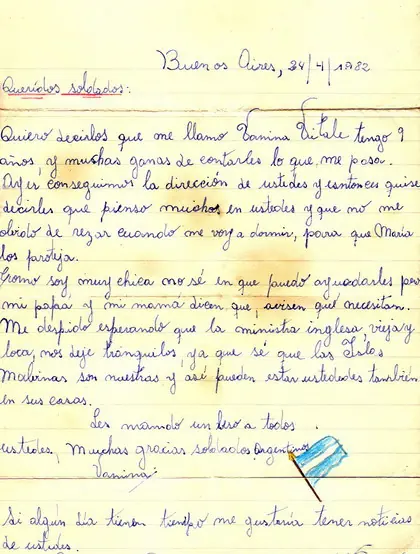 Buenos Aires, 24/4/1982
Queridos soldados:
Quiero decirlos que me llamo Vanina Vitale tengo 9
años, y muchas ganas de contarles lo que me pasa.
Ayer conseguimos la dirección de ustedes y entonces quise
decirles que pienso mucho en ustedes y que no me
olvido de rezar cuando me voy a dormir, para que María
los proteja.
Como soy muy chica no sé en que puedo ayudarles pero
mi papá y mi mamá dicen, que, avisen qué necesitan.
Me despido esperando que la ministra inglesa, vieja y
loca, nos deje tranquilos, ya que sé que las Islas
Malvinas son nuestras y así pueden estar ustedades también
en sus casas.
Les mando un beso a todos
ustedes, Muchas gracias soldados Argentinos
Vanina.
Si algún día tienen tiempo me gustaría tener noticias
de ustedes.